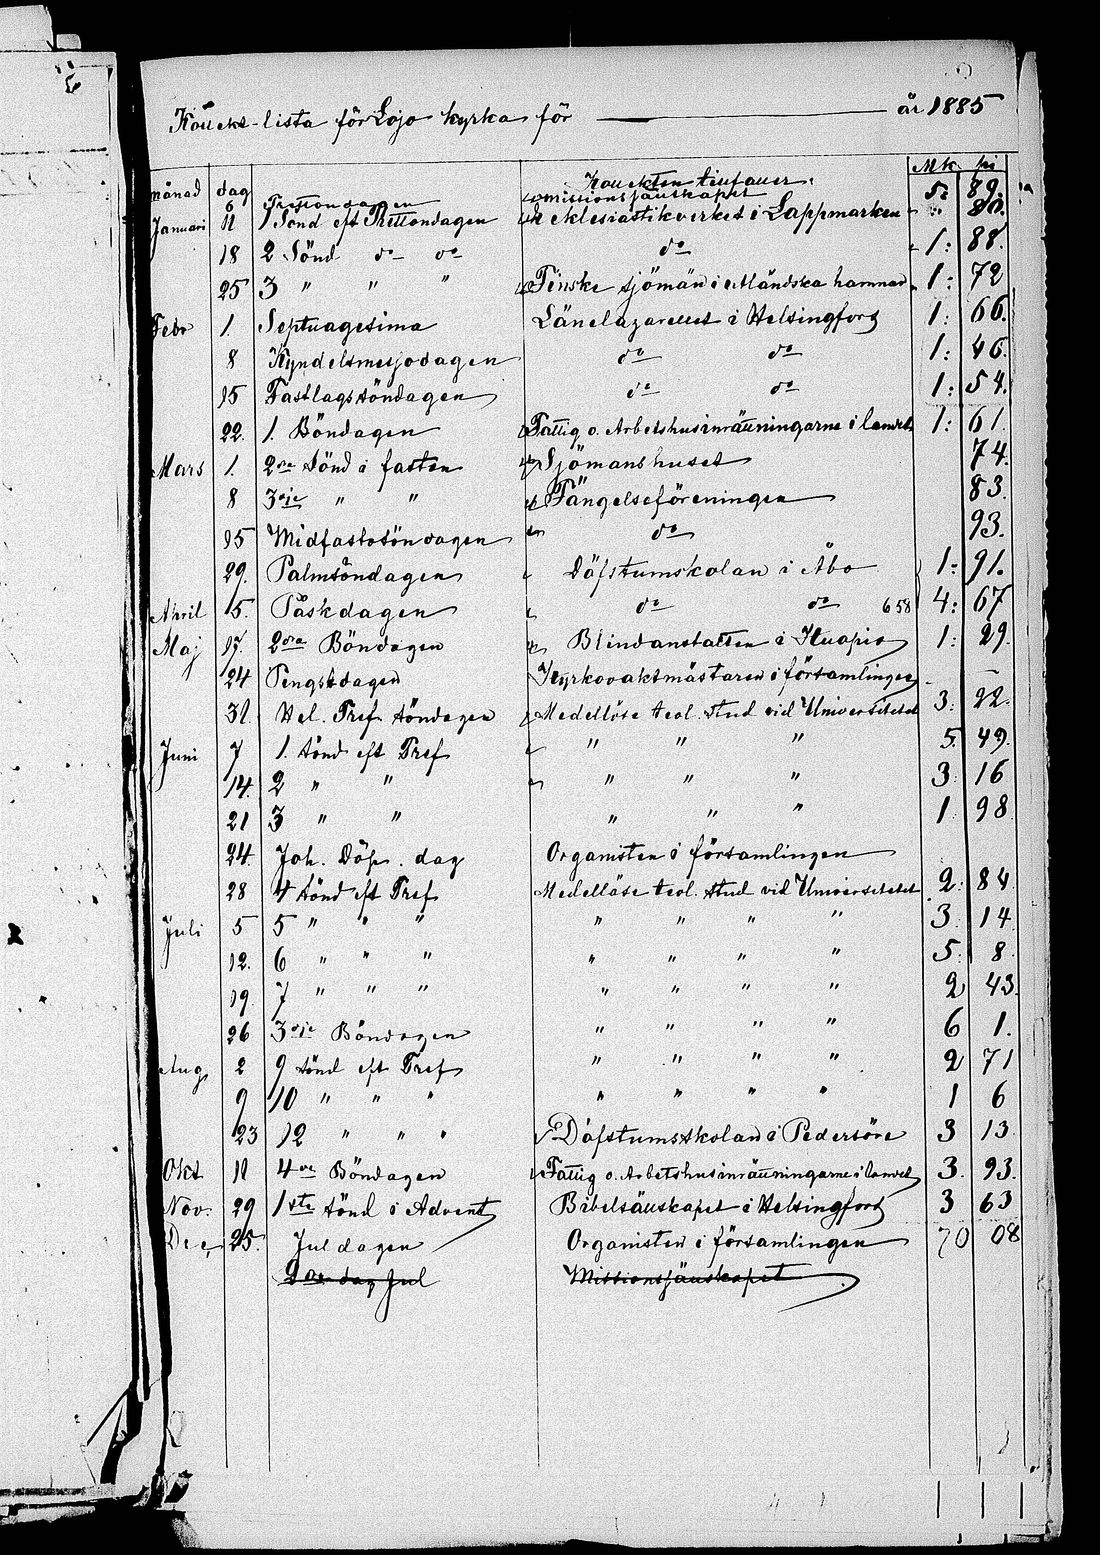 Kollekt-lista för Lojo kyrka för — år 1885
månad dag Kollekten tillfaller Mk pi
6 Trettondagen Missionssällskapet 5: 89.
Januari 11 1 Sönd eft Trettondagen Eklesiastikverket i Lappmarken " 80.
18 2 Sönd do do do 1: 88.
25 3 " " " Finske sjömän i utländska hamnar 1: 72
Febr 1. Septuagesima Länelazarettet i Helsingfors 1: 66.
8 Kyndelsmessodagen do do 1: 46.
15 Fastlagssöndagen do do 1: 54.
22. 1. Böndagen Fattig o. Arbetshusinrättningarne i landet 1: 61.
Mars 1. 2dra Sönd i fastan Sjömanshuset 74.
8 3dje " " Fängelseföreningen 83.
15 Midfastosöndagen do 93.
29. Palmsöndagen Döfstumskolan i Åbo 1: 91.
April 5. Påskdagen do do 658 4: 67
Maj 17. 2dra Böndagen Blindanstalten i Kuopio 1: 29.
24 Pingstdagen Kyrkovaktmästaren i församlingen —
31. Hel. Tref söndagen Medellöse teol. stud vid Universitetet 3: 22.
Juni 7 1. sönd eft Tref " " " 5. 49.
14. 2 " " " " " 3: 16
21 3 " " " " " 1: 98
24. Joh. Döp. dag Organisten i församlingen
28 4 sönd eft Tref Medellöse teol. stud vid Universitetet 2: 84
Juli 5 5 " " " " " " " 3. 14
12. 6 " " " " " " " 5: 8
19. 7 " " " " " " " 2 43.
26 3dje Böndagen " " " " 6 1.
Aug. 2 9 sönd eft Tref " " " " 2 71
9 10 " " " " " " " 1 6
23 12 " " " Döfstumskolan i Pedersöre 3 13
Okt 11 4de Böndagen Fattig o. Arbetshusinrättningarne i landet 3. 93.
Nov. 29 1sta sönd i Advent Bibelsällskapet i Helsingfors 3 63
Dec. 25. Juldagen Organisten i församlingen 70 08
dag Jul Missionssällskapet